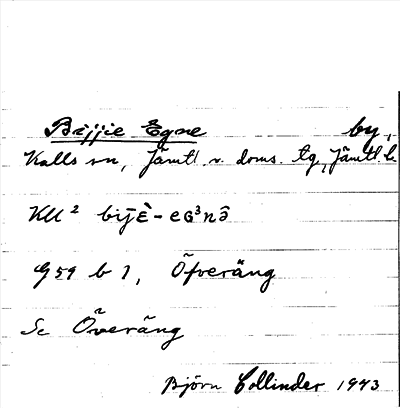 Bijjie Egne by,
Kalls sn, Jämtl. v. doms. tg, Jämtl. l.
KU² bijè-eG³nə̑
G 59 b 1, Öfveräng
Se Överäng
Björn Collinder 1943